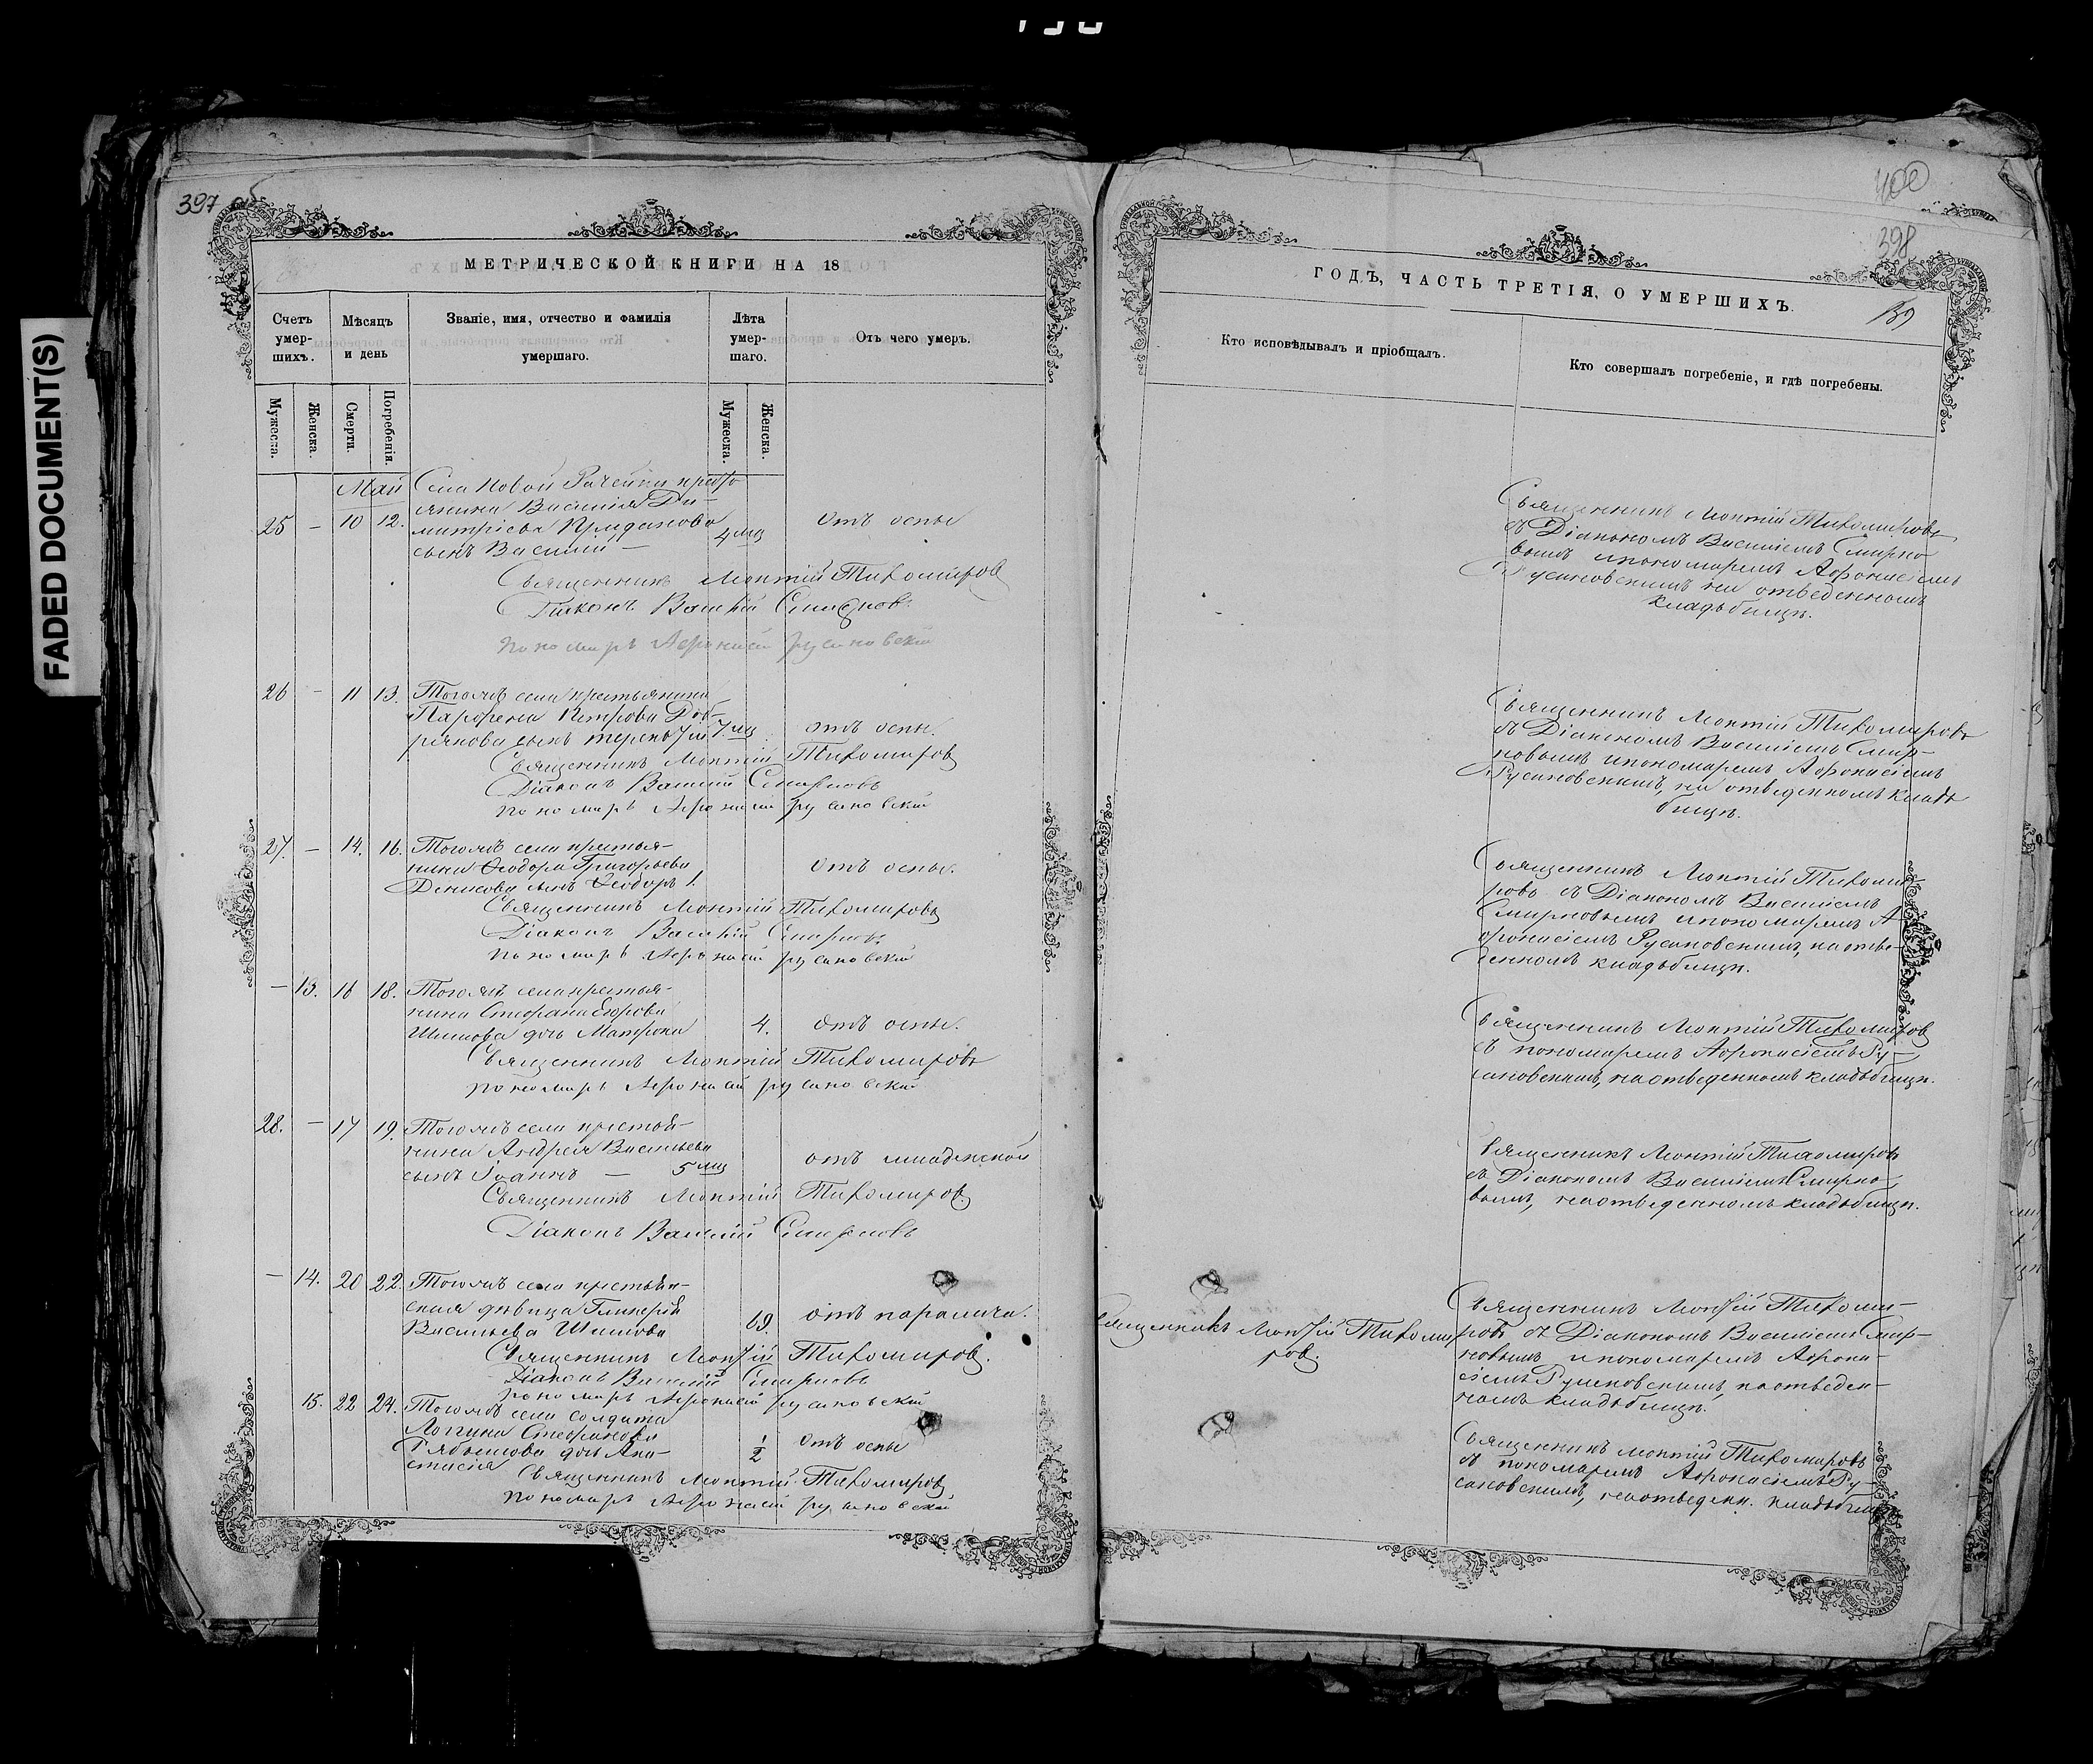 FADED DOCUMENT(S)
397
МЕТРИЧЕСКОЙ КНИГИ НА 18
Счетъ умер-шихъ.
Мѣсяцъ и день
Званіе, имя, отчество и фамилія умершаго.
Лѣта умер-шаго.
Отъ чего умеръ.
Мужеска.
Женска.
Смерти.
Погребенія.
Мужеска.
Женска.
Май
Села Новой Рачейки кресть
янина Василія Ди-
25 – 10 12. митріева Приданова 4 мц отъ оспы
сынъ Василій –
Священникъ Леонтій Тихомировъ
Діаконъ Василій Смирновъ.
Пономарь Афонасій Русановскій
26 – 11 13. Тогожъ села крестьянина
Парфена Петрова Доб-
рякова сынъ Терентій 7 мц отъ оспы.
Священникъ Леонтій Тихомировъ
Діаконъ Василій Смирновъ
Пономарь Афонасій Русановскій
27. – 14. 16. Тогожъ села крестья-
нина Ѳеодора Григорьева отъ оспы.
Денисова сынъ Ѳеодоръ 1.
Священникъ Леонтій Тихомировъ
Діаконъ Василій Смирновъ
Пономарь Афонасій Русановскій
– 13. 16 18. Тогожъ села крестья-
нина Стефана Егорова
Шишова дочь Матрона 4. отъ оспы.
Священникъ Леонтій Тихомировъ
Пономарь Афонасій Русановскій
28. – 17 19. Тогожъ села крестья-
нина Андрея Васильева
сынъ Іоаннъ – 5 мц отъ младенской
Священникъ Леонтій Тихомировъ.
Діаконъ Василій Смирновъ
– 14. 20 22. Тогожъ села крестьян-
ская дѣвица Гликерія
Васильева Шишова 69. отъ паралича.
Священникъ Леонтій Тихомировъ.
Діаконъ Василій Смирновъ
Пономарь Афонасій Русановскій
15. 22 24. Тогожъ села солдата
Логгина Стефанова
дочь Ана- 1/2 отъ оспы
стасія
Священникъ Леонтій Тихомировъ
Пономарь Афонасій Русановскій
400
398
139
ГОДЪ, ЧАСТЬ ТРЕТІЯ, О УМЕРШИХЪ.
Кто исповѣдывалъ и пріобщалъ.
Кто совершалъ погребеніе, и гдѣ погребены.
Священникъ Леонтій Тихомировъ
съ Діакономъ Василіемъ Смирно
вымъ и пономаремъ Афонасіемъ
Русановскимъ на отведенномъ
кладьбищѣ.
Священникъ Леонтій Тихомировъ
съ Діакономъ Василіемъ Смир-
новымъ и пономаремъ Афонасіемъ
Русановскимъ, на отведенномъ кладь
бищѣ.
Священникъ Леонтій Тихоми-
ровъ съ Діакономъ Василіемъ
Смирновымъ и пономаремъ А-
фонасіемъ Русановскимъ, на отве-
денномъ кладьбищѣ.
Священникъ Леонтій Тихомировъ
съ пономаремъ Афонасіемъ Ру-
сановскимъ, на отведенномъ кладьбищѣ.
Священникъ Леонтій Тихомировъ
съ Діакономъ Василіемъ Смирно
вымъ, на отведенномъ кладьбищѣ.
Священникъ Леонтій Тихоми
ровъ.
Священникъ Леонтій Тихоми-
ровъ съ Діакономъ Василіемъ Смир-
новымъ и пономаремъ Афона-
сіемъ Русановскимъ, на отведен-
номъ кладьбищѣ.
Священникъ Леонтій Тихомировъ
съ пономаремъ Афонасіемъ Ру-
сановскимъ, на отведенн. кладьбищѣ